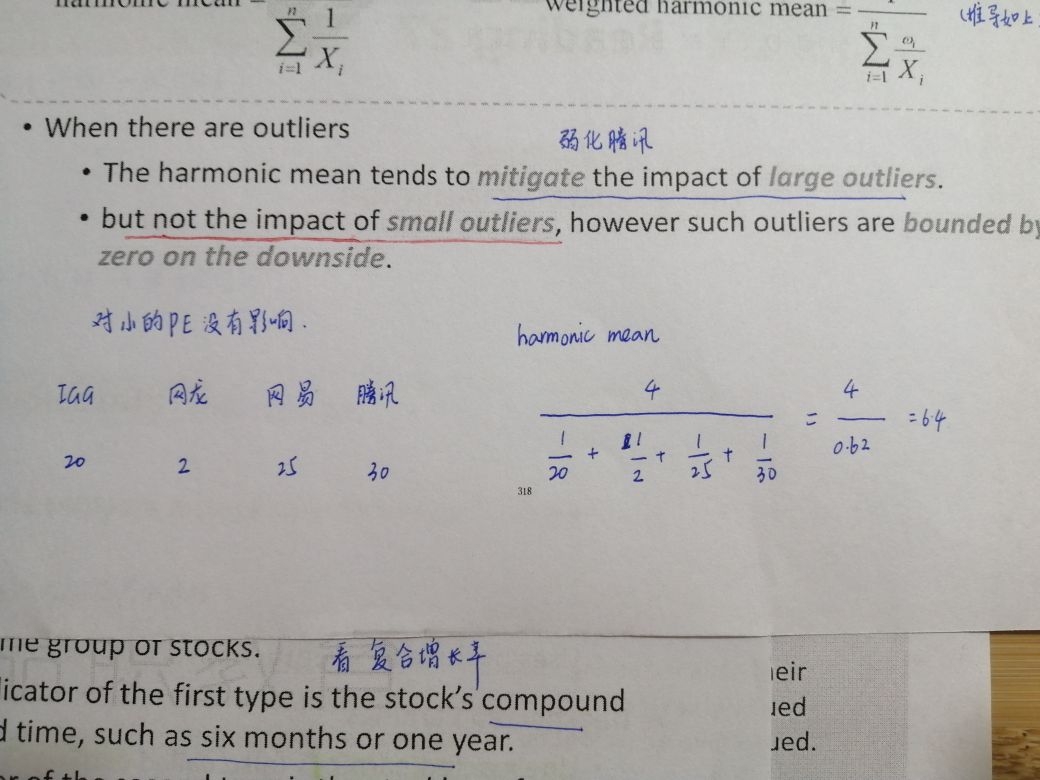 harmonic mean =
n
∑ 1/Xi
i=1
weighted harmonic mean =
n
∑ ωi/Xi
i=1
(推导如上
• When there are outliers
弱化腾讯
• The harmonic mean tends to mitigate the impact of large outliers.
• but not the impact of small outliers, however such outliers are bounded by
zero on the downside.
对小的PE没有影响.
harmonic mean
IGG 网龙 网易 腾讯
20 2 25 30
4 / (1/20 + 1/2 + 1/25 + 1/30) = 4/0.62 = 6.4
318
me group of stocks.
看复合增长率
licator of the first type is the stock's compound
d time, such as six months or one year.
heir
ued
ued.